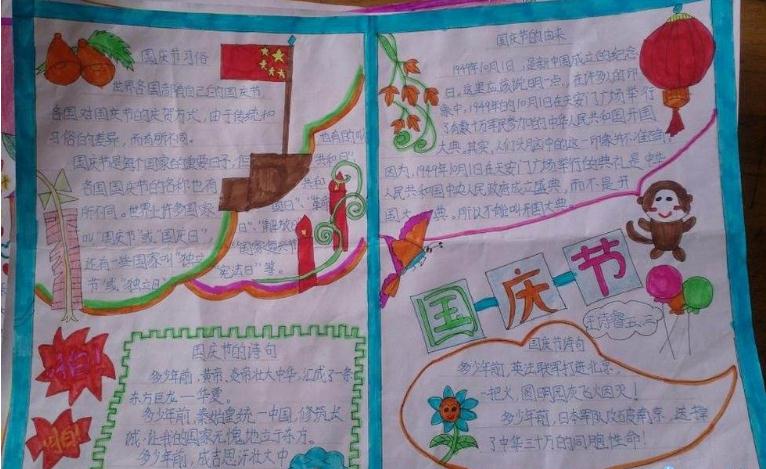 国庆节习俗
世界各国都有自己的国庆节,
各国对国庆节的庆贺方式,由于传统和
习俗的差异,而有所不同。
国庆节是每个国家的重要日子,但
各国国庆节的名称也有
所不同。世界上许多国家
叫“国庆节”或“国庆日”,
还有一些国家叫“独立
节”或“独立日”
也有的叫
共和日”、
共和
国日”、“革命
日”、“解放
“国家复兴节
宪法日”等。
国庆节的由来
1949年10月1日,是新中国成立的纪念
日。这里应该说明一点,在许多人的印
象中,1949年的10月1日在天安门广场举行
了有数十万军民参加的中华人民共和国开国
大典。其实,人们头脑中的这一印象并不准确。
因为,1949年10月1日在天安门广场举行的典礼是中华
人民共和国中央人民政府成立盛典,而不是开
国大典。所以不能叫开国大典
国庆节
国庆节的诗句
多少年前,黄帝、炎帝壮大中华,汇成了一条
东方巨龙——华夏。
多少年前,秦始皇统一中国,修筑长
城,让我的国家无愧地立于东方。
多少年前,成吉思汗壮大中
国庆节诗句
多少年前,英法联军打进北京。
一把火,圆明园灰飞烟灭!
多少年前,日本军队攻破南京,送掉
了中华三十万的同胞性命!